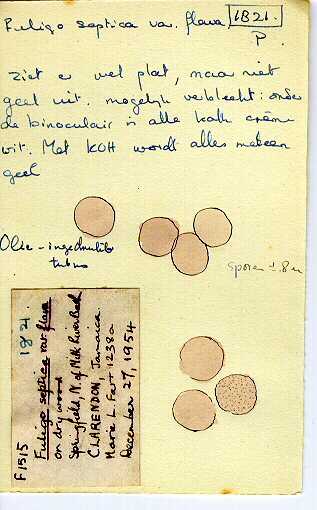 Fuligo septica var. flava 1821.
P.
Ziet er wel plat, maar niet
geel uit. mogelijk verbleekt: onder
de binoculair is alle kalk crème
wit. Met KOH wordt alles meteen
geel
Olie-
tubus
Sporen ± 8 u
F1515 1821.
Fuligo septica var flava
on dry wood
Springfield, N. of Milk River Bath
CLARENDON, Jamaica
Marie L. Farr 1238a
December 27, 1954